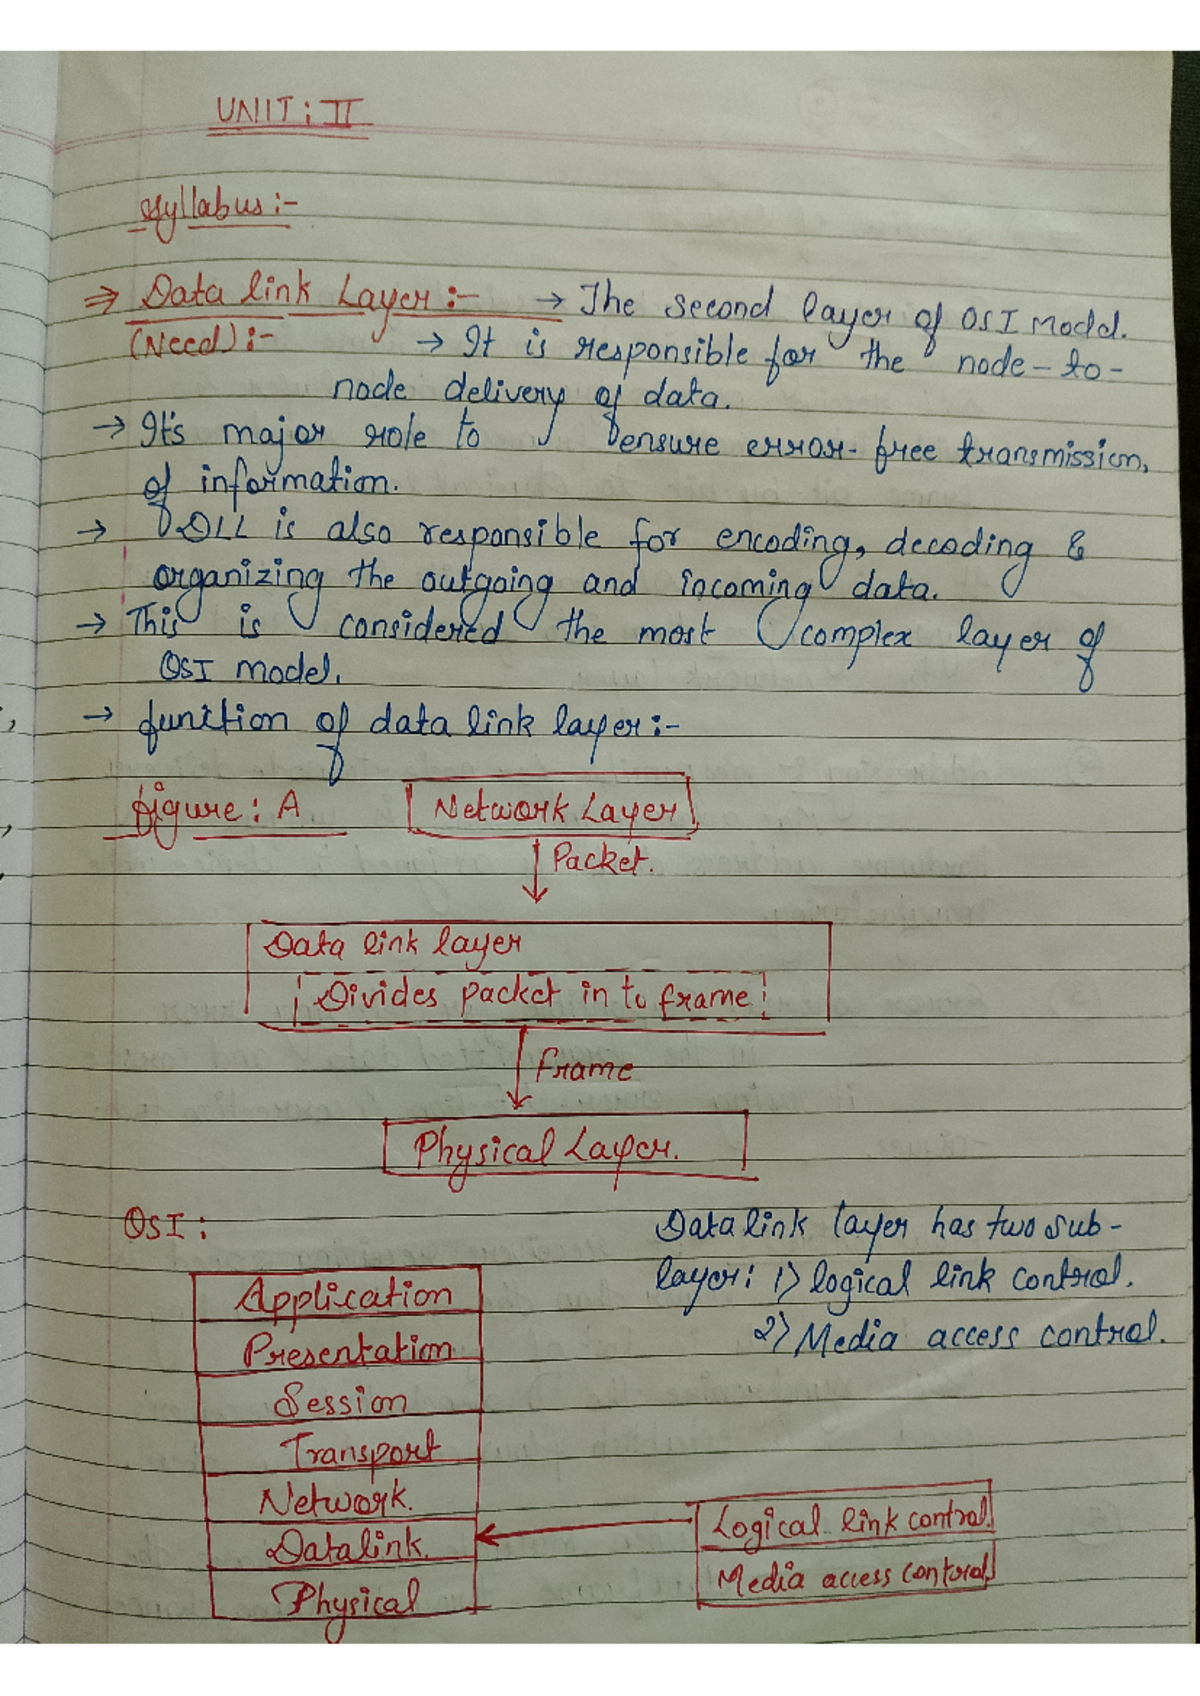 UNIT: II
Syllabus:-
⇒ Data link Layer:- → The second layer of OSI Model.
(Need):- → It is responsible for the node-to-
node delivery of data.
→ It's major role to ensure error-free transmission,
of information.
→ DLL is also responsible for encoding, decoding &
organizing the outgoing and incoming data.
→ This is considered the most complex layer of
OSI model.
→ function of data link layer:-
figure: A
Network Layer
Packet.
Data link layer
Divides packet in to frame
frame
Physical Layer.
OSI:
Data link layer has two sub-
layer: 1) logical link control.
2) Media access control.
Application
Presentation
Session
Transport
Network.
Datalink.
Physical
Logical link control.
Media access control